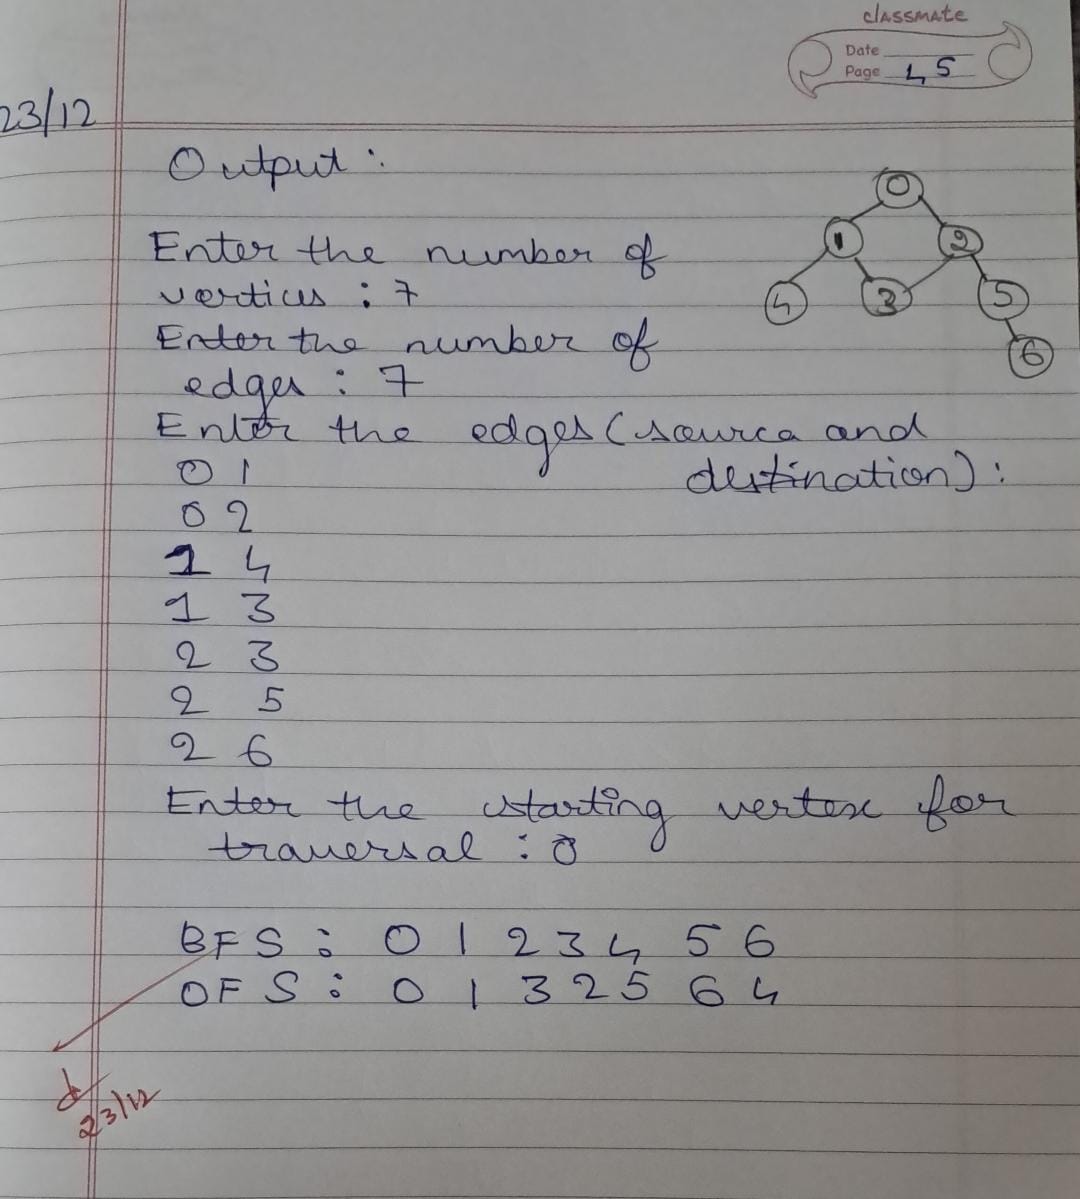 classmate
Date
Page 45
23/12
Output :
0
1 2
4 3 5
6
Enter the number of
vertices : 7
Enter the number of
edges : 7
Enter the edges (source and
destination) :
0 1
0 2
1 4
1 3
2 3
2 5
2 6
Enter the starting vertex for
traversal : 0
BFS : 0 1 2 3 4 5 6
DFS : 0 1 3 2 5 6 4
23/12